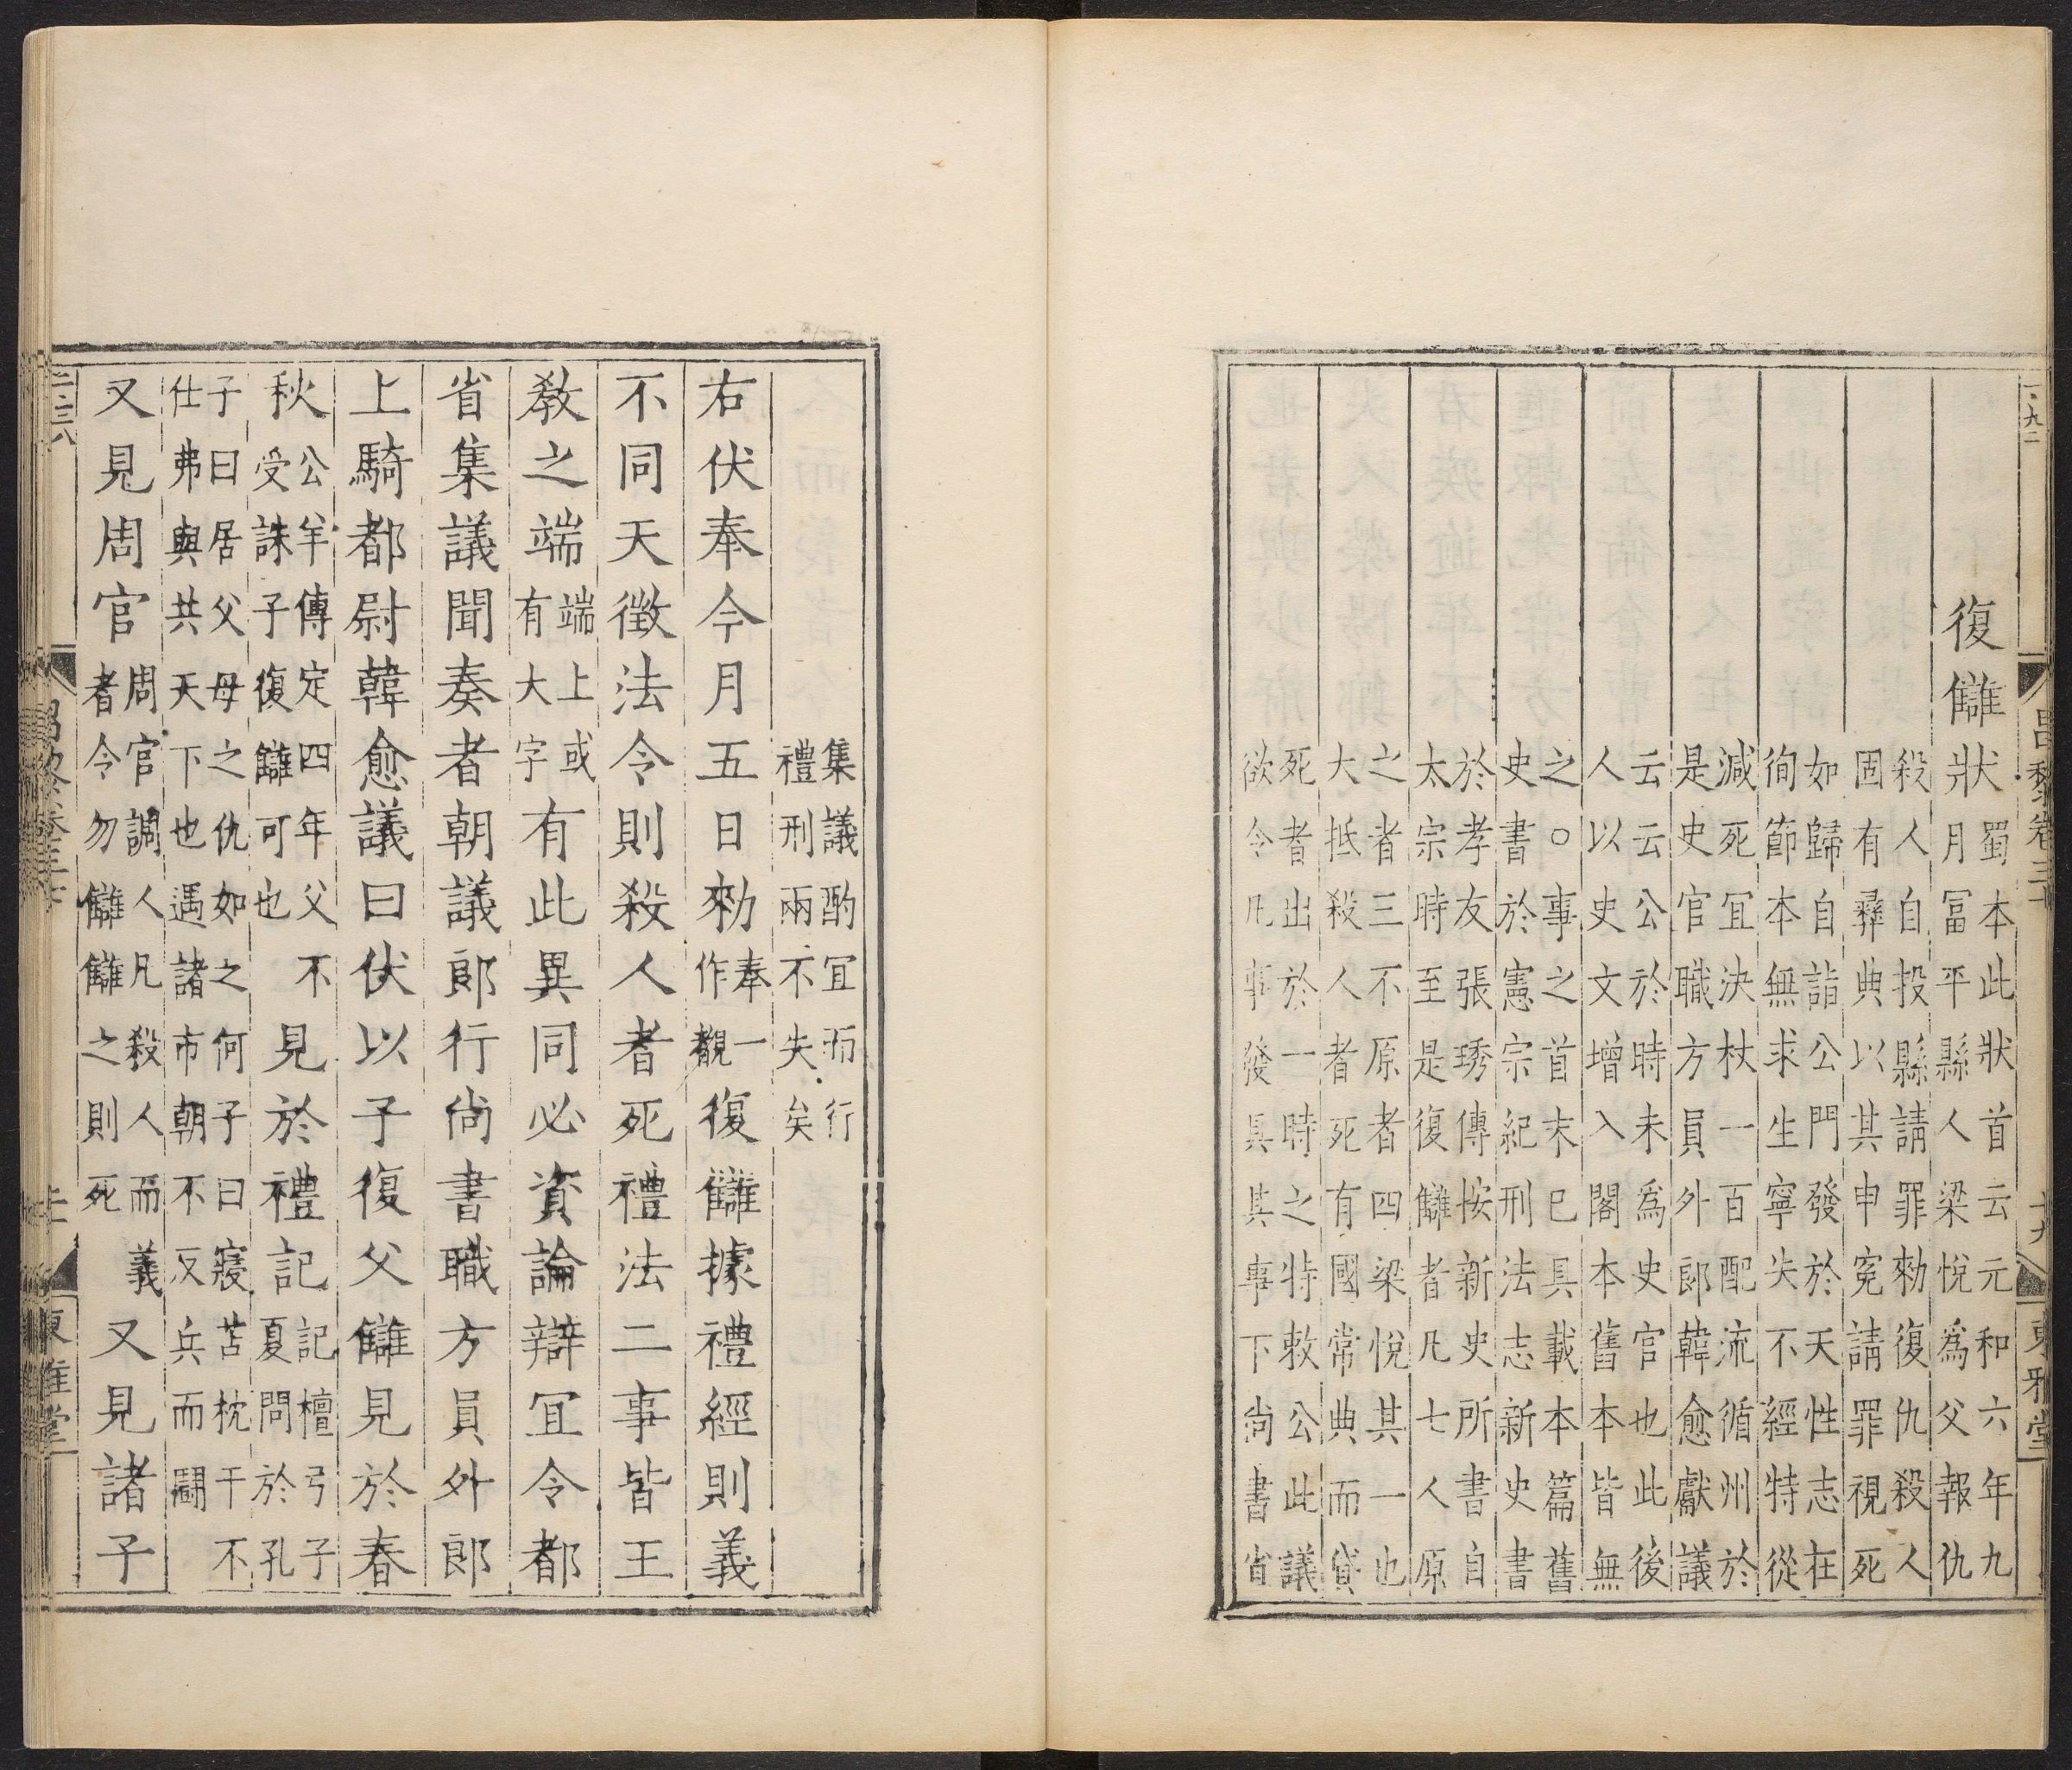 一九二
昌黎卷三十
十九
東雅堂
復讎狀
蜀本此狀首云元和六年九
月冨平縣人梁悅為父報仇
殺人自投縣請罪勑復仇殺人
固有彞典以其申寃請罪視死
如歸自詣公門發於天性志在
徇節本無求生寧失不經特從
減死宜決杖一百配流循州於
是史官職方員外郎韓愈獻議
云云公於時未為史官也此後
人以史文增入閣本舊本皆無
之○事之首末已具載本篇舊
史書於憲宗紀刑法志新史書
於孝友張琇傳按新史所書自
太宗時至是復讎者凡七人原
之者三不原者四梁悅其一也
大抵殺人者死有國常典而貸
死者出於一時之特敕公此議
欲令凡事發具其事下尚書省
集議酌宜而行
禮刑兩不失矣
右伏奉今月五日勑奉一作覩復讎據禮經則義
不同天徵法令則殺人者死禮法二事皆王
教之端端上或有大字有此異同必資論辯宜令都
省集議聞奏者朝議郎行尚書職方員外郎
上騎都尉韓愈議曰伏以子復父讎見於春
秋公羊傳定四年父不受誅子復讎可也見於禮記記檀弓子夏問於孔
子曰居父母之仇如之何子曰寢苫枕干不
仕弗與共天下也遇諸市朝不反兵而鬭
又見周官周官調人凡殺人而義者令勿讎讎之則死又見諸子
東雅堂